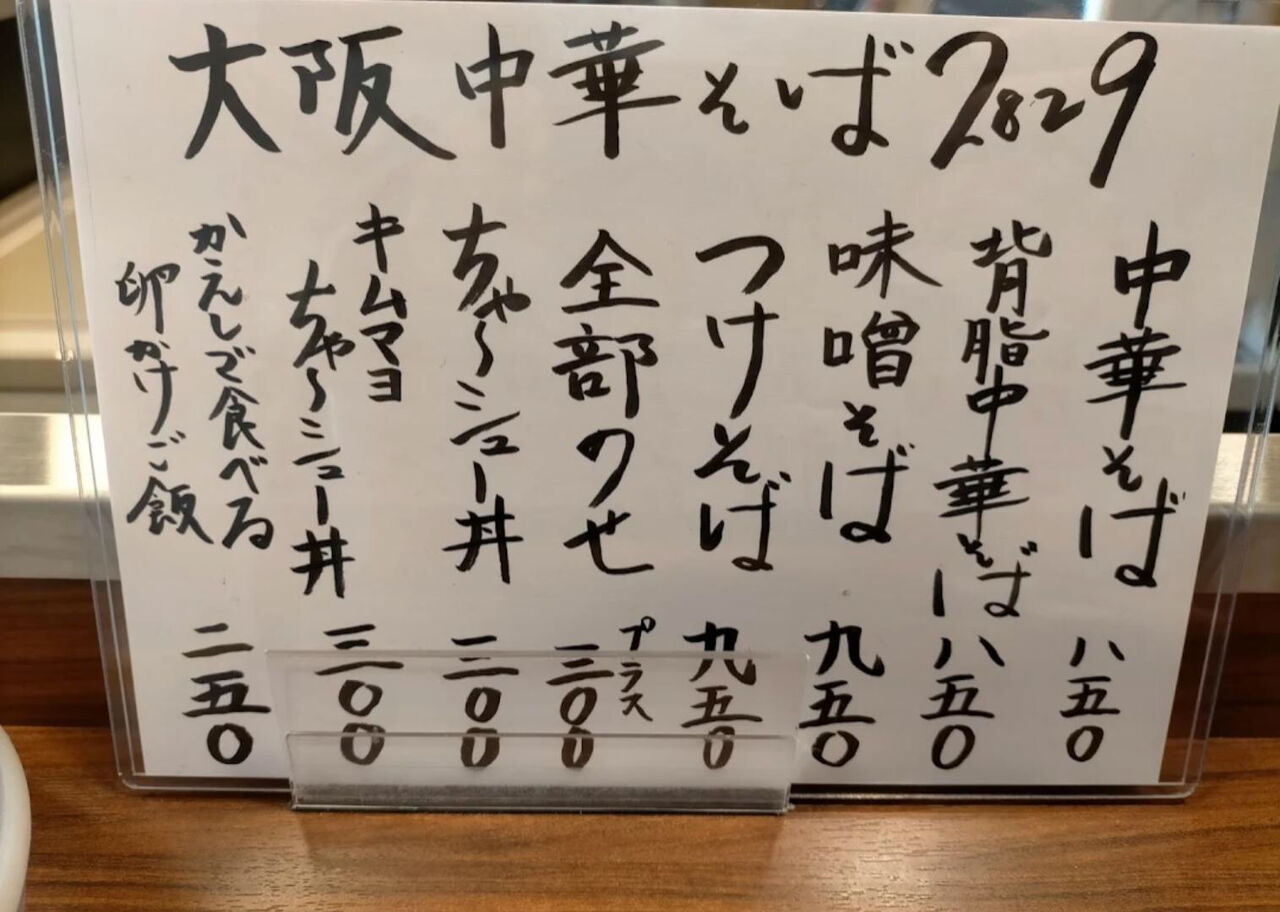 大阪中華そば2829
中華そば 八五〇
背脂中華そば 八五〇
味噌そば 九五〇
つけそば 九五〇
全部のせ プラス三〇〇
ちゃ〜シュー丼 三〇〇
キムマヨ
ちゃ〜シュー丼 三〇〇
かえしで食べる
卵かけご飯 二五〇